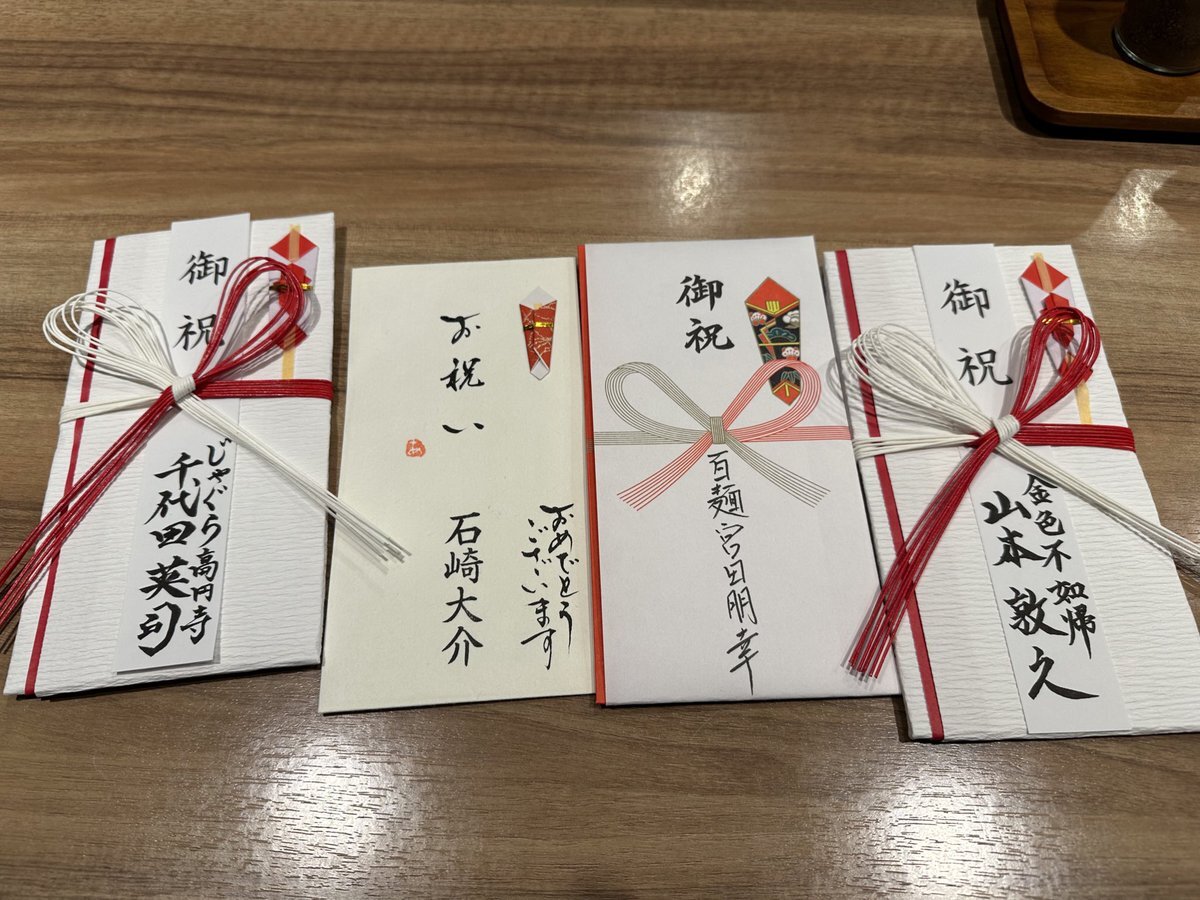 御祝
じゃぐら高円寺
千代田英司
お祝い
おめでとう
ございます
石崎大介
御祝
百麺宮田明幸
御祝
金色不如帰
山本敦久